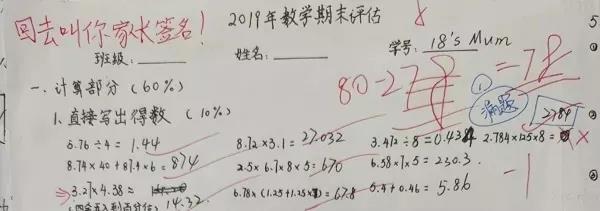 回去叫你家长签名!
2019年数学期末评估
班级: 姓名: 学号: 18's Mum
80-2 = 78
一、计算部分 (60%)
1、直接写出得数 (10%)
漏题
2784
5.76÷4= 1.44 8.72×3.1= 27.032 3.472÷8=0.434 2.784×125×8=
8.74×40+87.4×6= 874 2.5×6.7×8×5= 670 6.58×7×5= 230.3
3.27×4.38≈ 14.32 6.78×(1.25+1.25× )=67.8 5.4+0.46= 5.86
-1
5